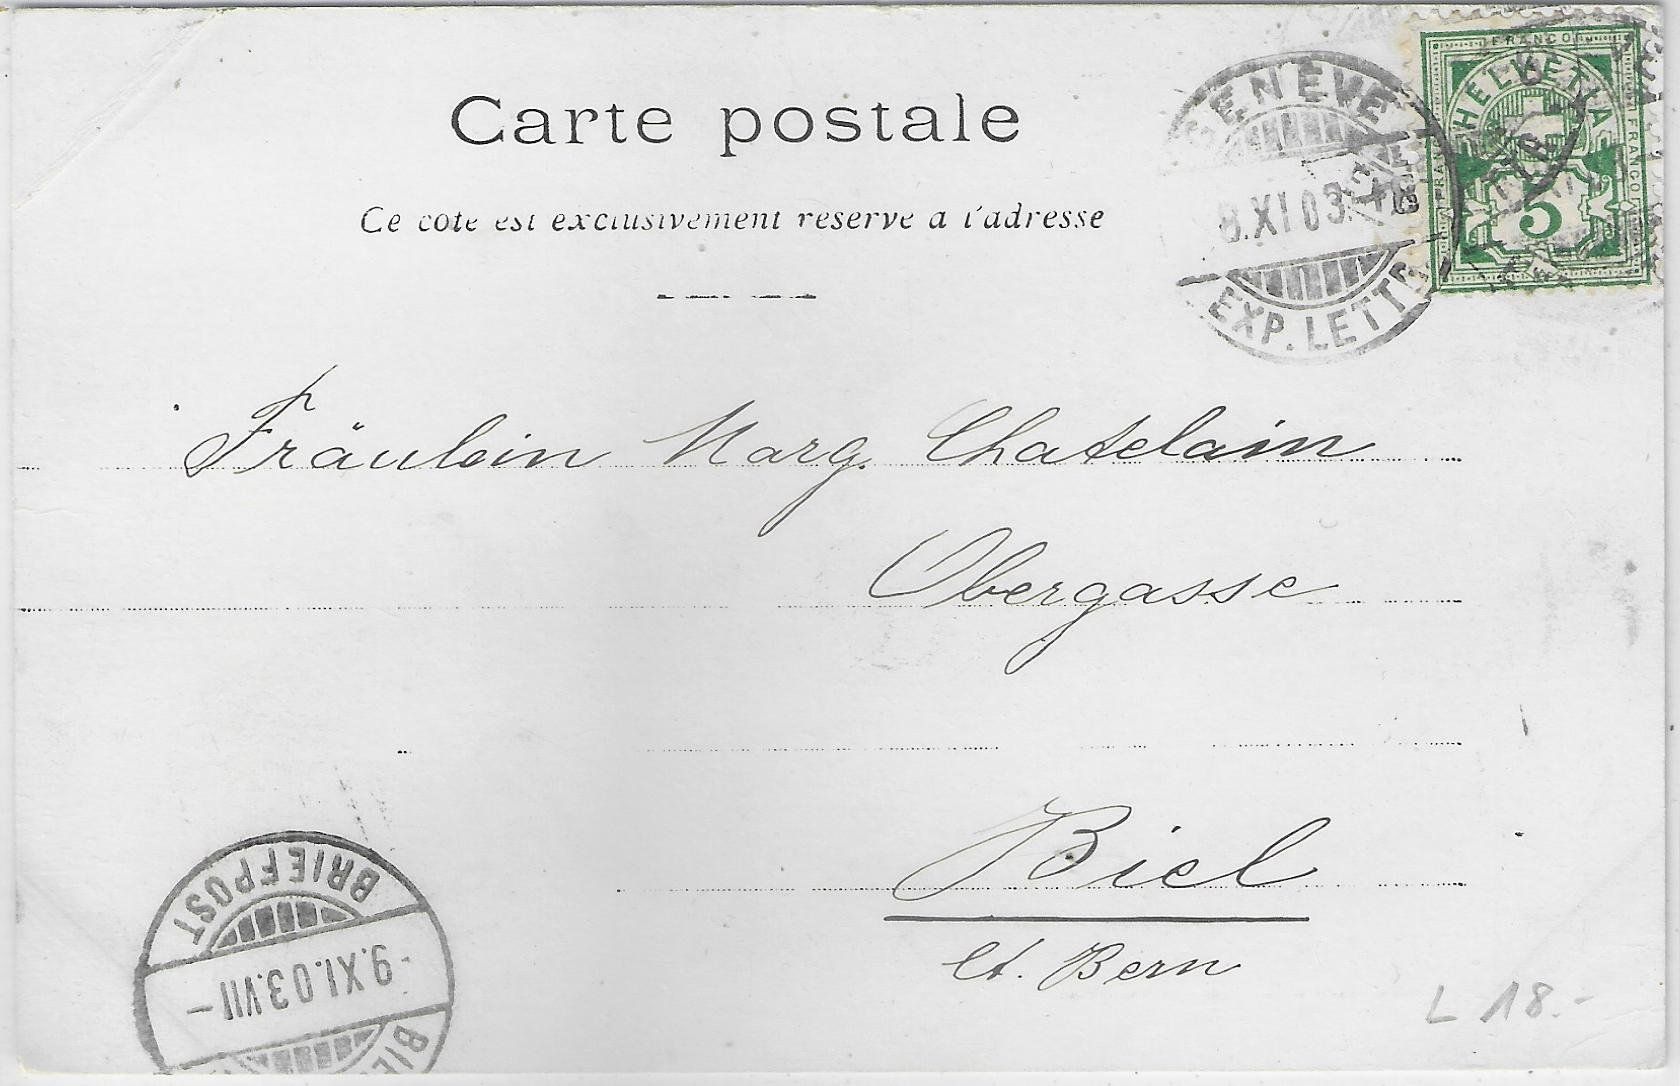 Carte postale
Ce cote est exclusivement reserve a l'adresse
GENÈVE
8.XI.03.
EXP. LETTR
FRANCO
HELVETIA
FRANCO
5
Fräulein Marg. Chatelain
Obergasse
Biel
Ct. Bern
BRIEFPOST
-9.XI.03.VII-
BIE
L 18.-